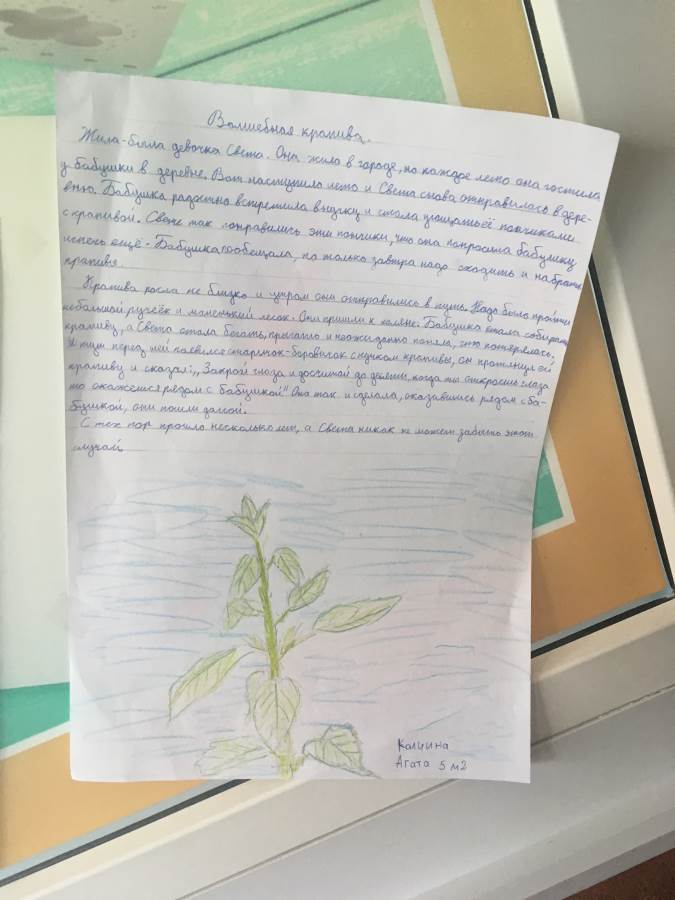 Волшебная крапива.
Жила-была девочка Света. Она жила в городе, но каждое лето она гостила
у бабушки в деревне. Вот наступило лето и Света снова отправилась в дере-
вню. Бабушка радостно встретила внучку и стала угощать её пончиками
с крапивой. Свете так понравились эти пончики, что она попросила бабушку
испечь ещё. Бабушка пообещала, но только завтра надо сходить и набрать
крапивя.
Крапива росла не близко и утром они отправились в путь. Надо было пройти
небольшой ручеёк и маленький лесок. Они пришли к поляне. Бабушка стала собирать
крапиву, а Света стала бегать, прыгать и неожиданно поняла, что потерялась.
И тут перед ней появился старичок-боровичок с пучком крапивы, он протянул ей
крапиву и сказал: „Закрой глаза и досчитай до девяти, когда ты откроешь глаза
то окажешся рядом с бабушкой." Она так и сделала, оказавшись рядом с ба-
бушкой, они пошли домой.
С тех пор прошло несколько лет, а Света никак не может забыть этот
случай.
Калцина
Агата 5 м2